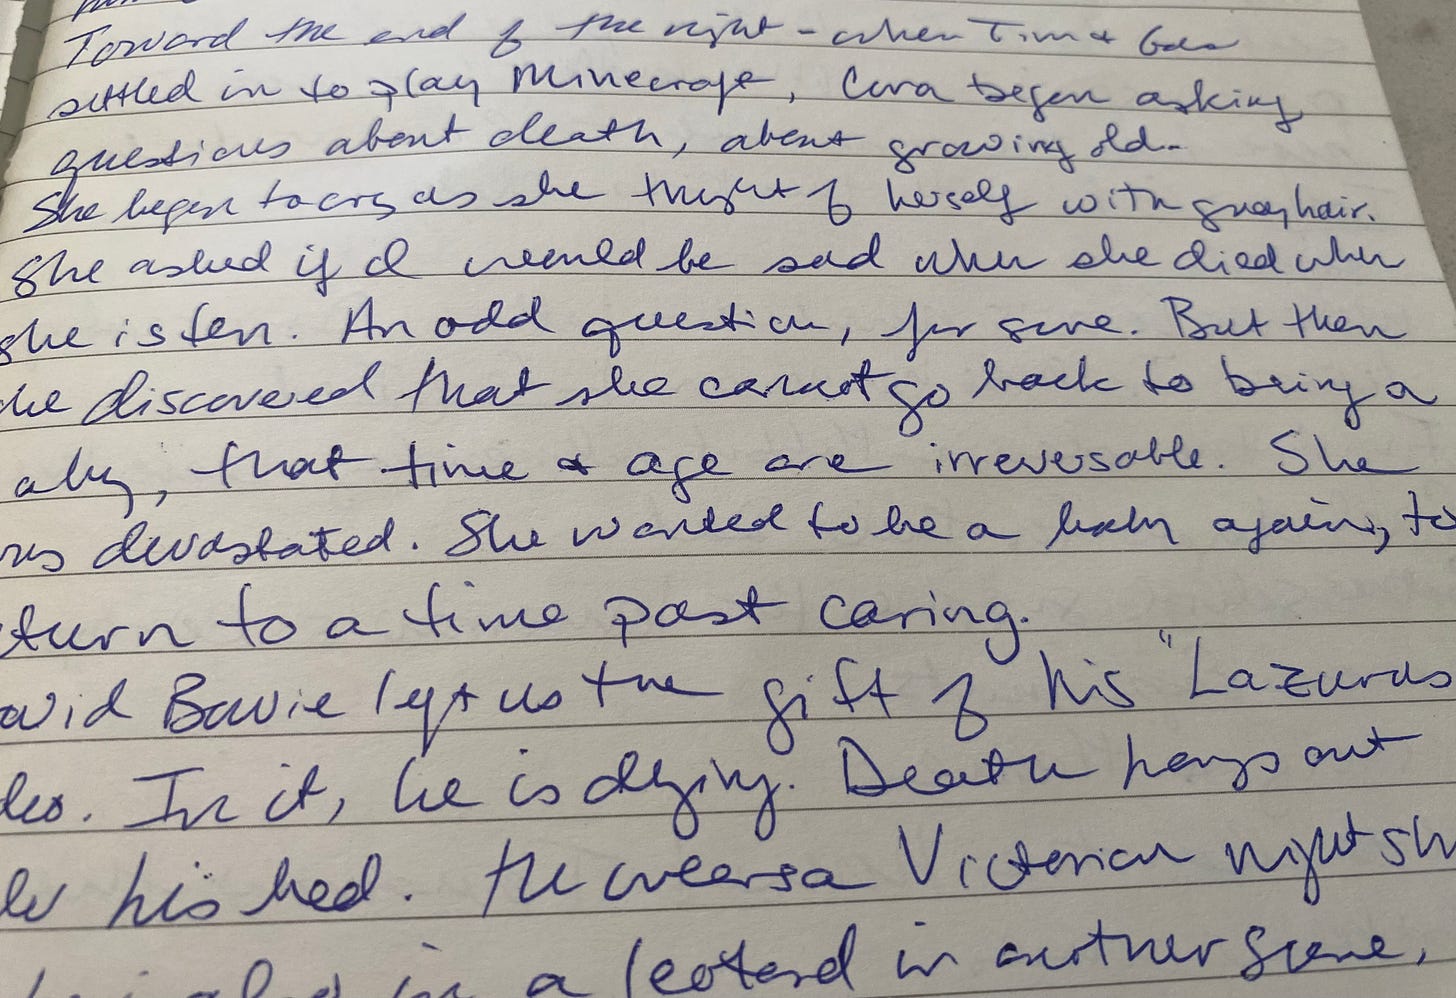 Toward the end of the night - when Tim &
settled in to play Minecraft, Cora began asking
questions about death, about growing old.
She began to cry as she thought of herself with gray hair.
She asked if I would be sad when she died when
she is ten. An odd question, for sure. But then
he discovered that she cannot go back to being a
aby, that time & age are irreversable. She
as devastated. She wanted to be a baby again, to
turn to a time past caring.
avid Bowie left us the gift of his "Lazurus
deo. In it, he is dying. Death hangs out
his bed. He wears a Victorian nightsh
in a leotard in another scene,